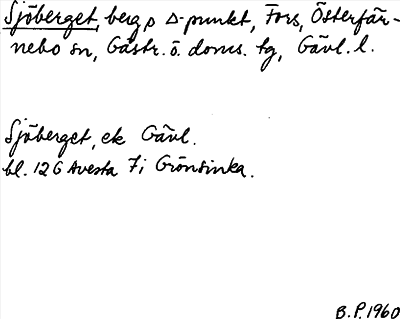 Sjöberget, berg o △-punkt, Fors, Österfär-
nebo sn, Gästr. ö. doms. tg, Gävl. l.
Sjöberget, ek Gävl.
bl. 12G Avesta 7i Grönsinka.
B.P. 1960